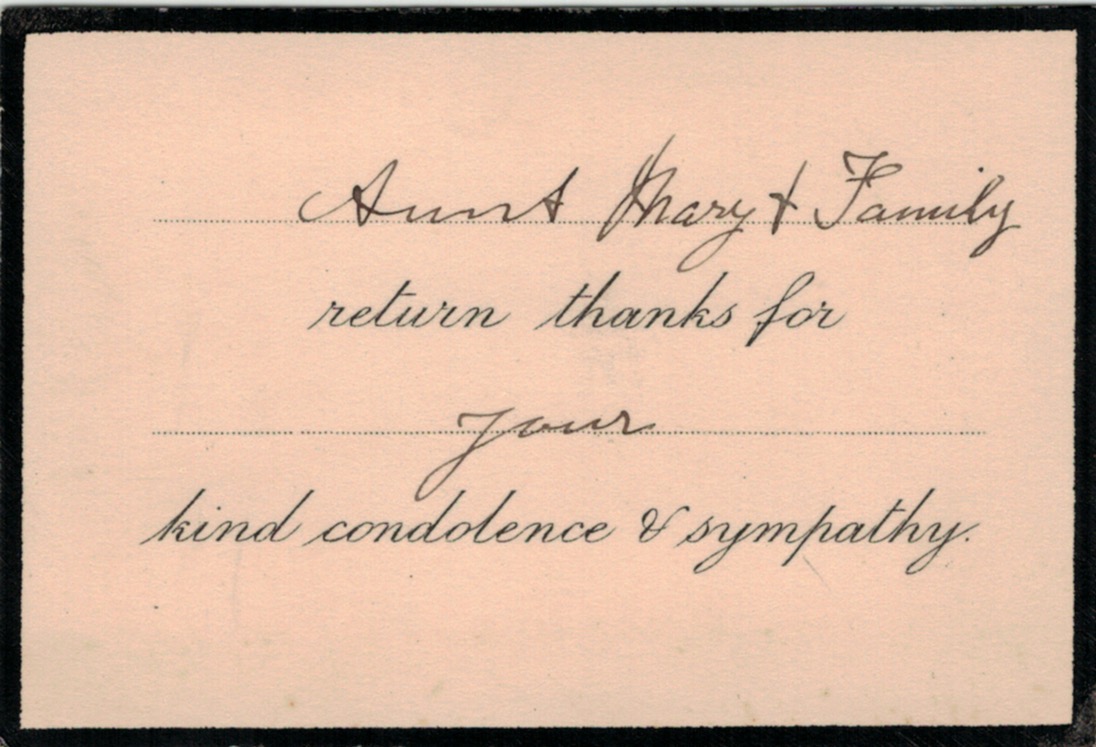 Aunt Mary & Family
return thanks for
your
kind condolence & sympathy.